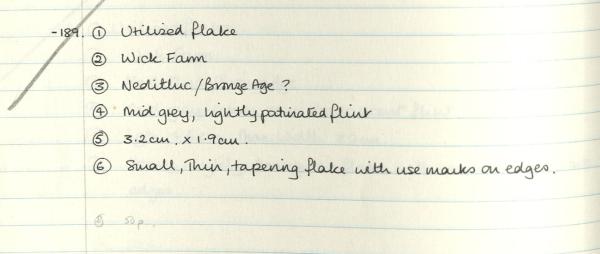 -189. ① Utilized flake
② Wick Farm
③ Neolithic / Bronze Age ?
④ Mid grey, lightly patinated flint
⑤ 3.2cm. x 1.9cm.
⑥ Small, Thin, tapering flake with use marks on edges.
50p.